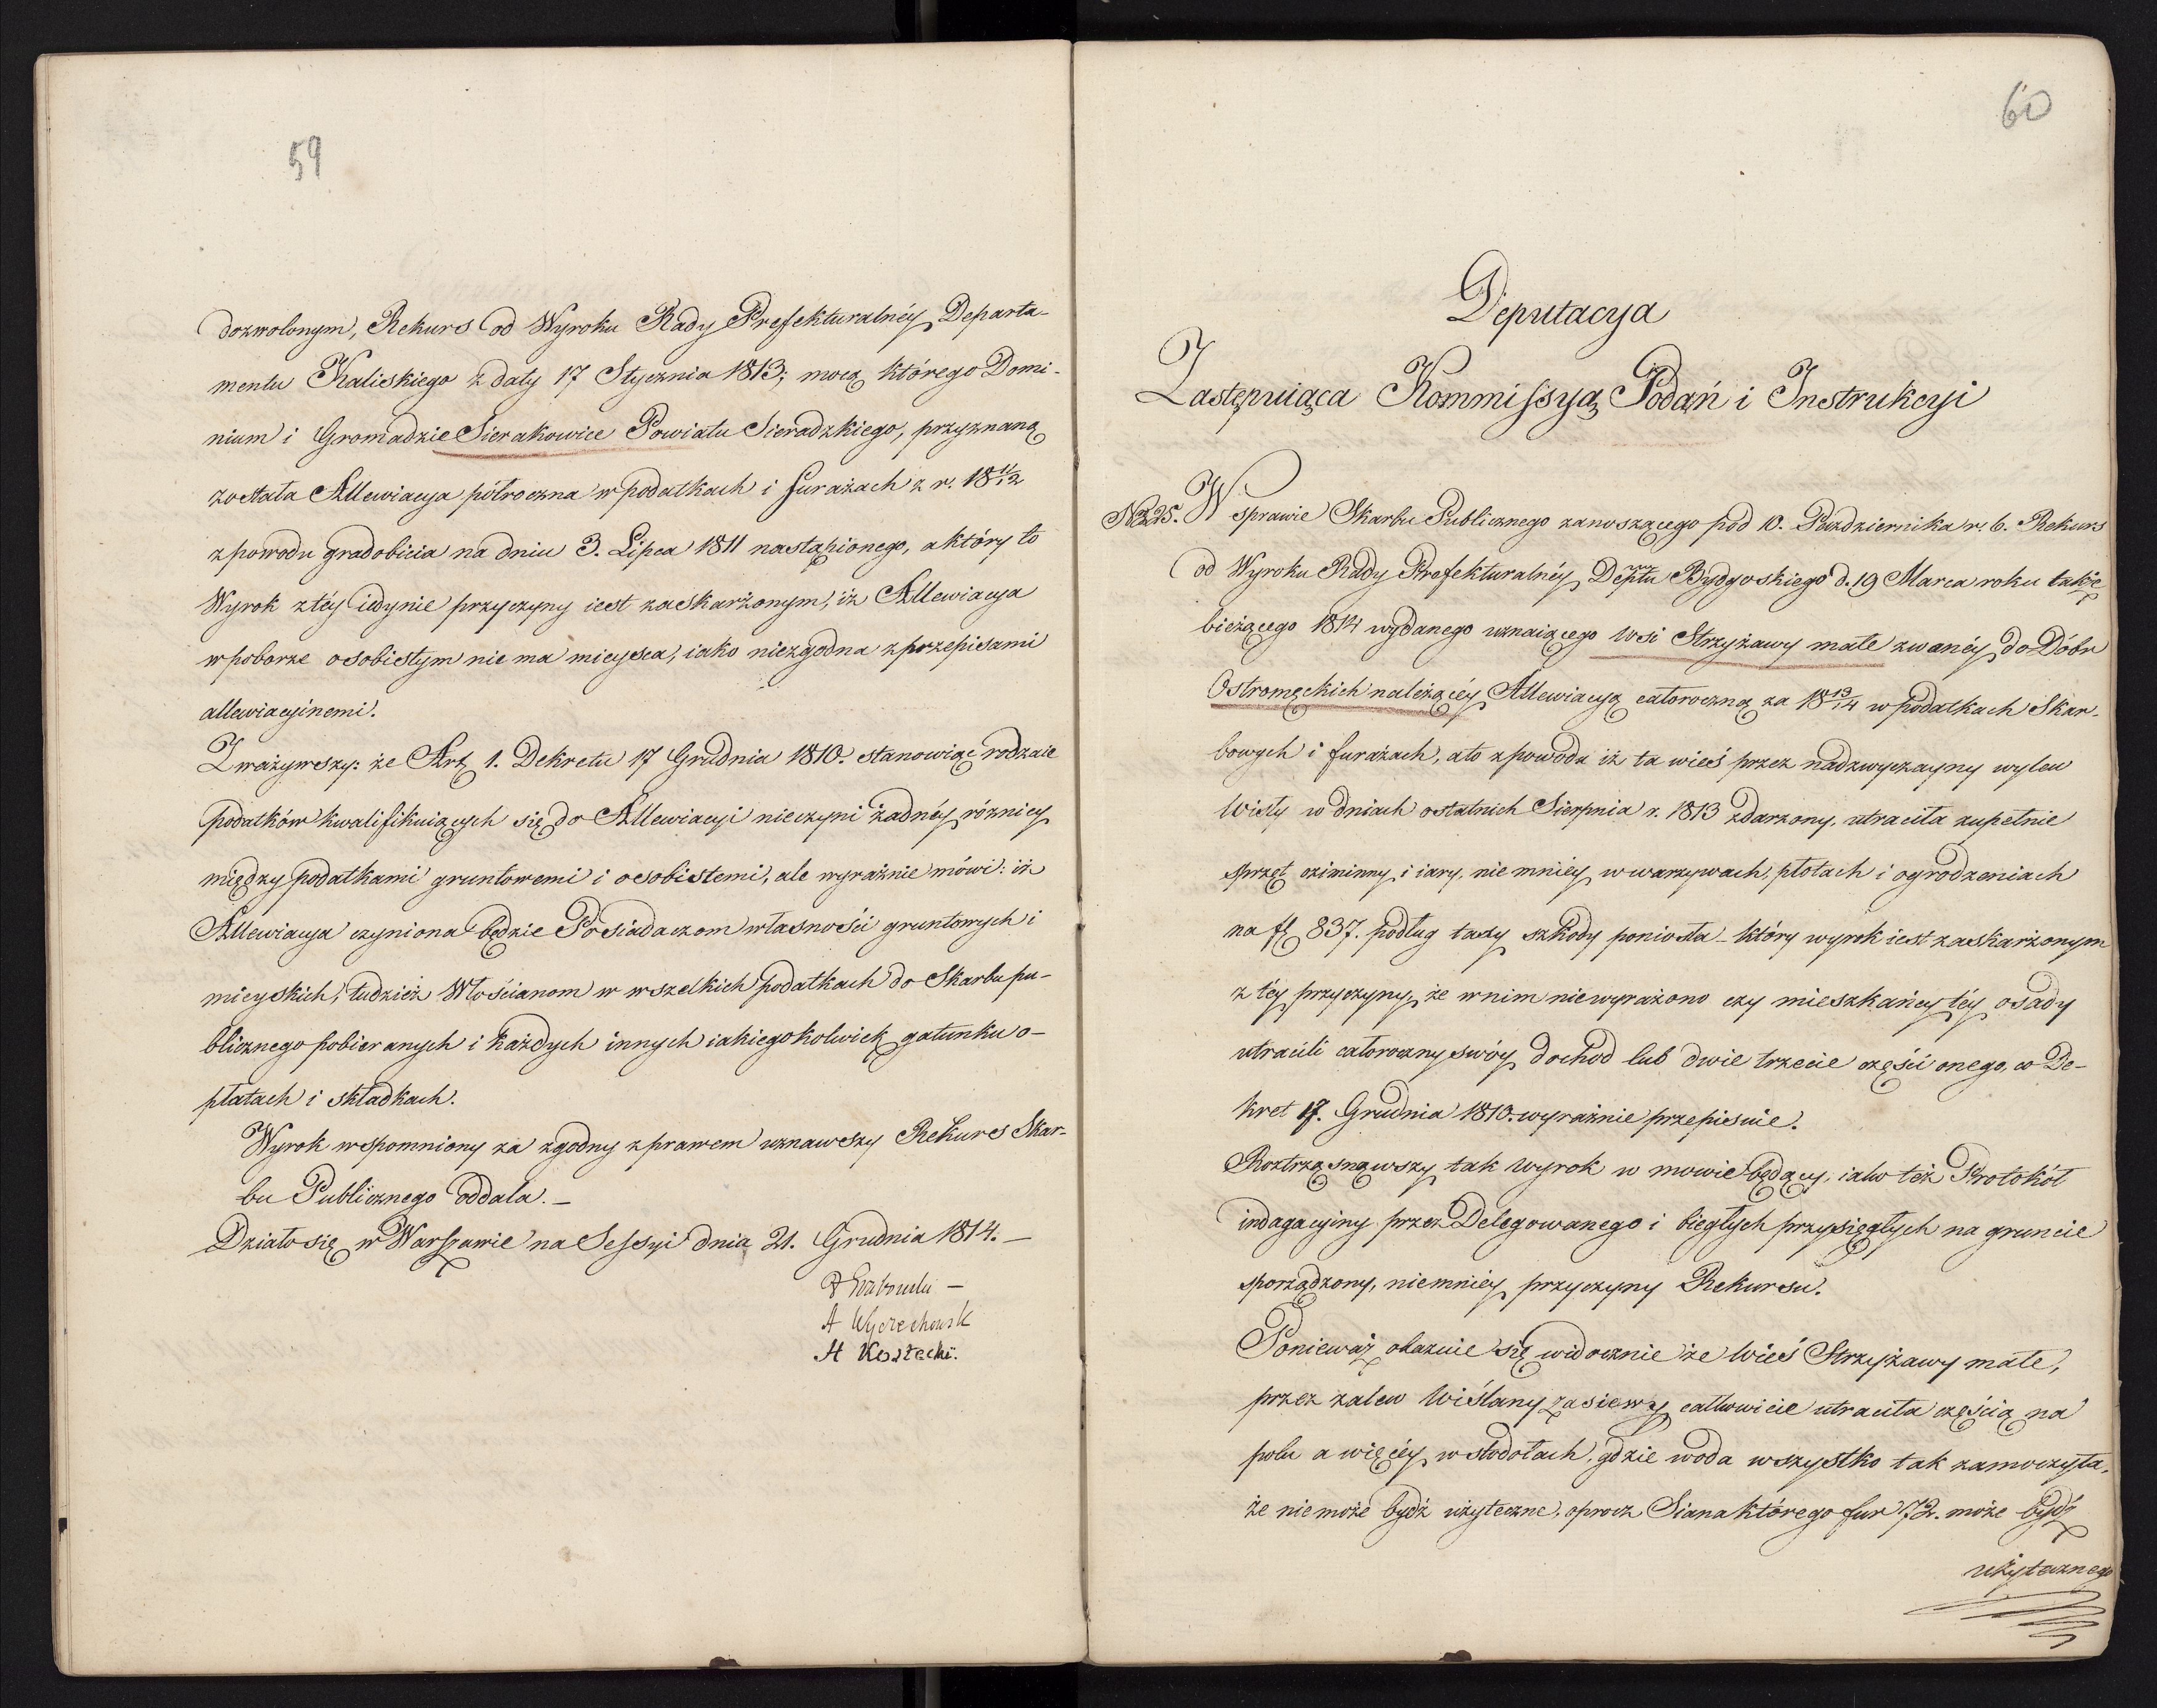 59
dozwolonym, Rekurs od Wyroku Rady Prefekturalnéy Departa-
mentu Kaliskiego z daty 17 Stycznia 1813; mocą którego Domi-
nium i Gromadzie Sierakowice Powiatu Sieradzkiego, przyznaną
została Allewiacya półroczna w podatkach i furażach z r. 18 11/12
z powodu gradobicia na dniu 3. Lipca 1811 nastąpionego, a który to
Wyrok z téy iedynie przyczyny iest zaskarżonym, iż Allewiacya
w poborze osobistym nie ma mieysca, iako niezgodna z przepisami
allewiacyinemi.
Zważywszy: że Art. 1. Dekretu 17 Grudnia 1810. stanowiąc rodzaie
podatków kwalifikuiących się do Allewiacyi nieczyni żadnéy różnicy
między podatkami gruntowemi i osobistemi, ale wyraźnie mówi: iż
Allewiacya czyniona będzie Posiadaczom własności gruntowych i
mieyskich, tudzież Włościanom w wszelkich podatkach do Skarbu pu-
blicznego pobieranych i każdych innych iakiegokolwiek gatunku o-
płatach i składkach.
Wyrok wspomniony za zgodny z prawem uznawszy Rekurs Skar-
bu Publicznego oddala. –
Działo się w Warszawie na Sessyi dnia 21. Grudnia 1814. –
A Wyczechowsk
A Kożecki.
60
Deputacya
Zastępuiąca Kommissyą Podań i Instrukcyi
No 225. W sprawie Skarbu Publicznego zanoszącego pod 10. Października r. b. Rekurs
od Wyroku Rady Prefekturalnéy Deptu Bydgoskiego d. 19 Marca roku także
bieżącego 1814 wydanego uznaiącego Wsi Strzyżawy małe zwanéy do Dóbr
Ostromęckich należącéy Allewiacyą całoroczną za 18 13/14 w podatkach Skar-
bowych i furażach, a to z powodu iż ta wieś przez nadzwyczayny wylew
Wisły w dniach ostatnich Sierpnia r. 1813 zdarzony, utraciła zupełnie
sprzęt oziminny i iary, nie mniéy w warzywach, płotach i ogrodzeniach
na fl 837. podług taxy szkody poniosła – który wyrok iest zaskarżonym
z téy przyczyny, że w nim niewyrażono czy mieszkańcy téy osady
utracili całoroczny swóy dochod lub dwie trzecie części onego, co De-
kret 17. Grudnia 1810. wyraźnie przepisuie.
Roztrząsnąwszy tak Wyrok w mowie będący, iako też Protokół
indagacyiny przez Delegowanego i biegłych przysięgłych na gruncie
sporządzony, niemniéy przyczyny Rekursu.
Ponieważ okazuie się widocznie że Wieś Strzyżawy małe,
przez zalew Wiślany zasiewy całkowicie utraciła częścią na
polu a więcéy w stodołach, gdzie woda wszystko tak zamoczyła,
że nie może bydź użyteczne, oprocz Siana którego fur 72. może bydź
użytecznego